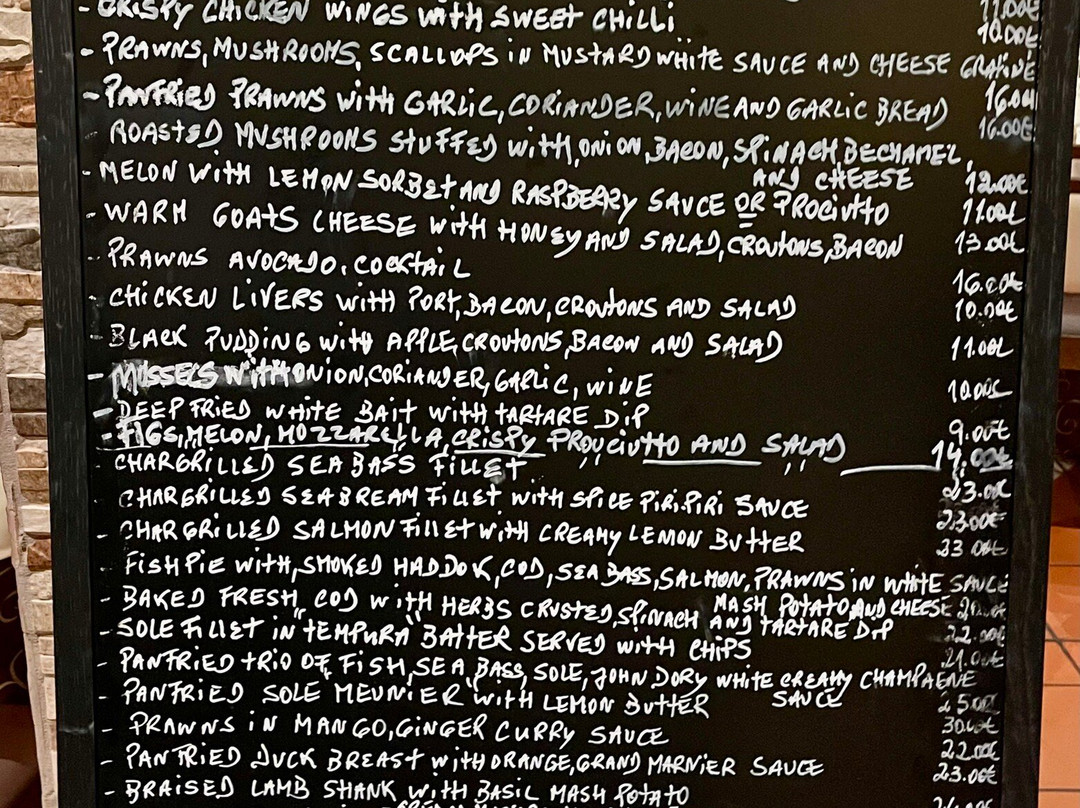 - CRISPY CHICKEN WINGS WITH SWEET CHILLI 11.00€
- PRAWNS, MUSHROOMS, SCALLOPS IN MUSTARD WHITE SAUCE AND CHEESE GRATINE 10.00€
- PANFRIED PRAWNS WITH GARLIC, CORIANDER, WINE AND GARLIC BREAD 16.00€
- ROASTED MUSHROOMS STUFFED WITH, ONION, BACON, SPINACH, BECHAMEL, 16.00€
AND CHEESE 12.00€
- MELON WITH LEMON SORBET AND RASPBERRY SAUCE OR PROCIUTTO 11.00€
- WARM GOATS CHEESE WITH HONEY AND SALAD, CROUTONS, BACON 13.00€
- PRAWNS AVOCADO, COCKTAIL 16.00€
- CHICKEN LIVERS WITH PORT, BACON, CROUTONS AND SALAD 10.00€
- BLACK PUDDING WITH APPLE CROUTONS, BACON AND SALAD 11.00€
- MUSSELS WITH ONION, CORIANDER, GARLIC, WINE 10.00€
- DEEP FRIED WHITE BAIT WITH TARTARE DIP 9.00€
- FIGS, MELON, MOZZARELLA, CRISPY PROUCIUTTO AND SALAD 14.00€
- CHARGRILLED SEA BASS FILLET 23.00€
- CHARGRILLED SEA BREAM FILLET WITH SPICE PIRI.PIRI SAUCE 23.00€
- CHARGRILLED SALMON FILLET WITH CREAMY LEMON BUTTER 23.00€
- FISH PIE WITH, SMOKED HADDOK, COD, SEA BASS, SALMON, PRAWNS IN WHITE SAUCE
MASH POTATO AND CHEESE
- BAKED FRESH COD WITH HERBS CRUSTED, SPINACH AND TARTARE DIP 22.00€
- SOLE FILLET IN "TEMPURA" BATTER SERVED WITH CHIPS 21.00€
- PANFRIED TRIO OF FISH, SEA BASS, SOLE, JOHN DORY WHITE CREAMY CHAMPAGNE
SAUCE 25.00€
- PANFRIED SOLE MEUNIER WITH LEMON BUTTER 30.00€
- PRAWNS IN MANGO, GINGER CURRY SAUCE 22.00€
- PANFRIED DUCK BREAST WITH ORANGE, GRAND MARNIER SAUCE 23.00€
- BRAISED LAMB SHANK WITH BASIL MASH POTATO